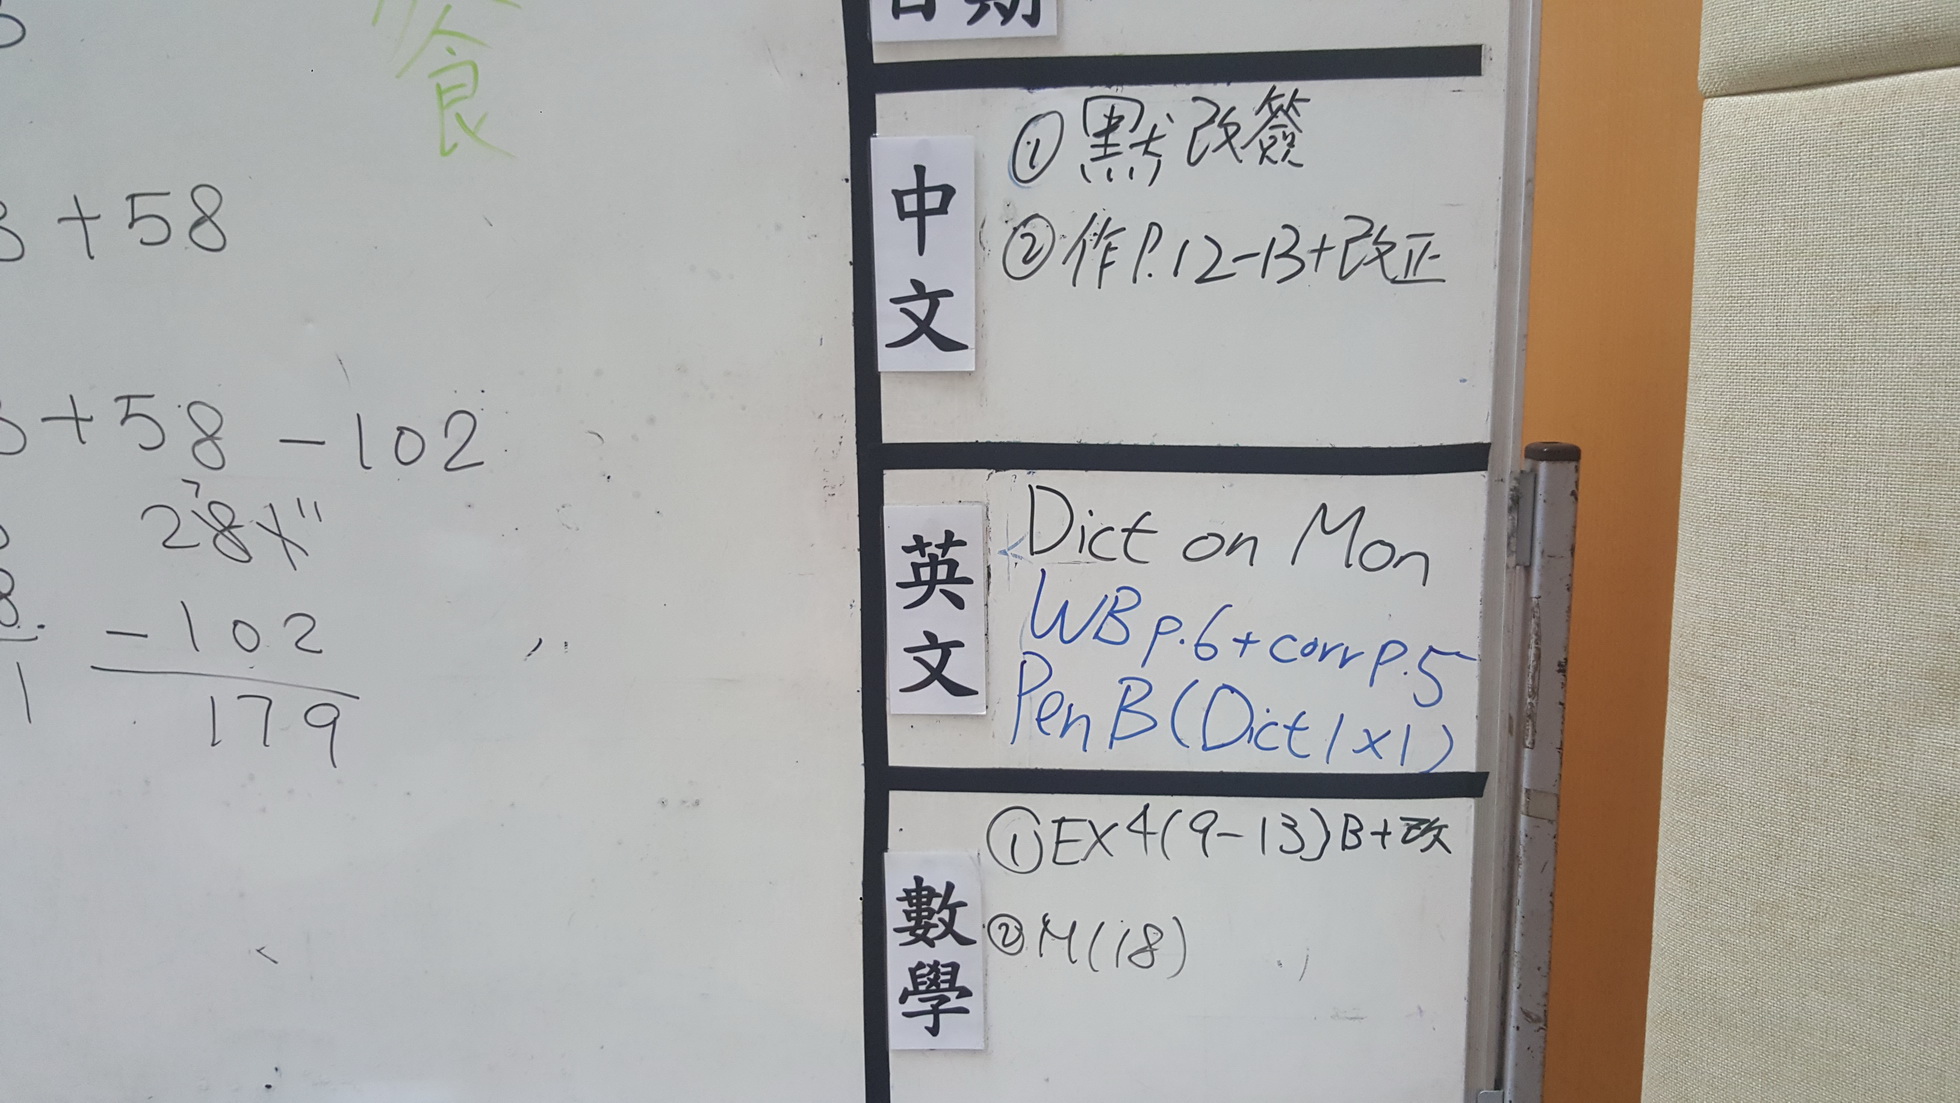 食
+58
+58-102
28 11
-102
179
日期
中文
①默改簽
②作P.12-13+改正
英文
Dict on Mon
WB p.6+corr p.5
Pen B(Dict 1x1)
數學
①EX4(9-13)B+改
②M(18)